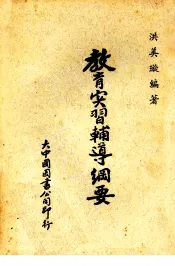 洪美璇編著
教育实習輔導綱要
大中國图書公司印行